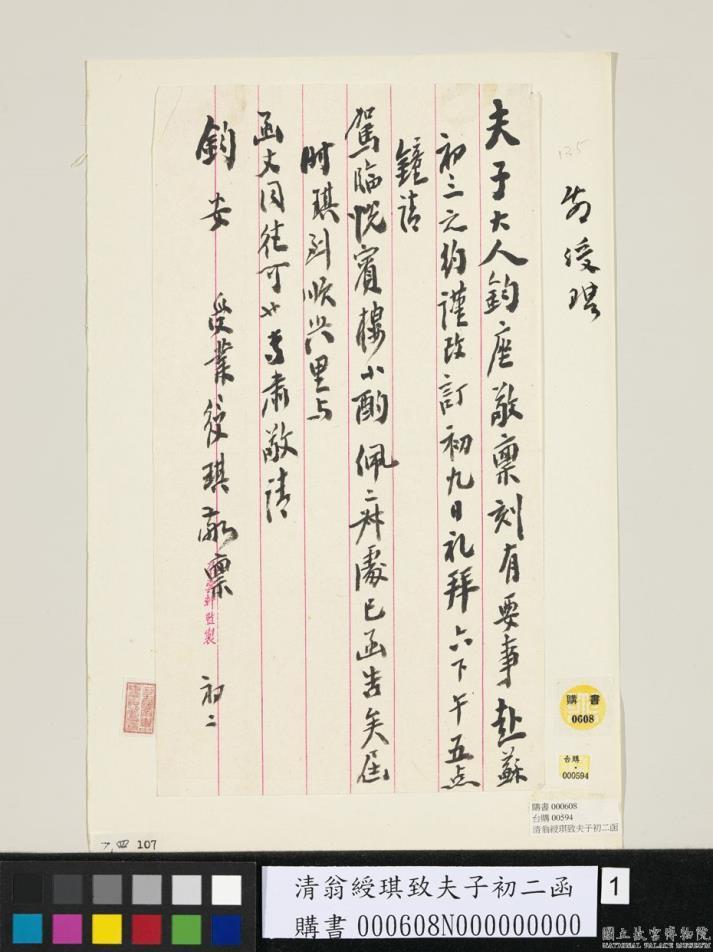 夫子大人鈞座敬稟刻有要事赴蘇
初三之約謹改訂初九日礼拜六下午五点
鐘請
駕臨悅賓樓小酌佩二册處已函告矣届
时琪到順兴里与
函丈同往可也專肅敬請
鈞安 受業綬琪敬稟 初二
監製
翁綬琪
135
購書
0608
台購
000594
購書 000608
台購 00594
清翁綬琪致夫子初二函
107
清翁綬琪致夫子初二函
購書 000608N000000000
1
國立故宮博物院
NATIONAL PALACE MUSEUM